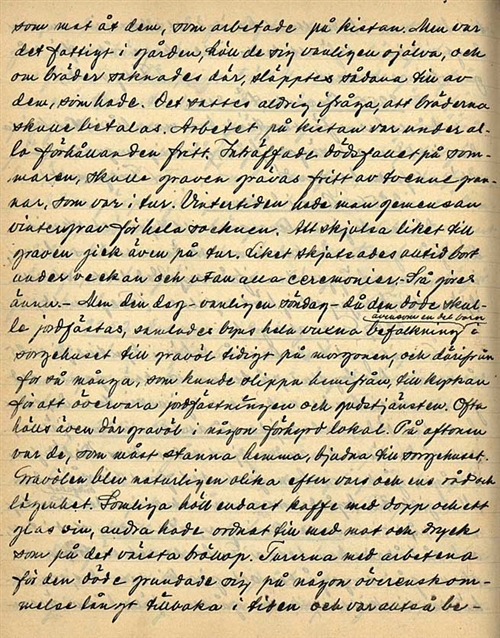 som mat åt dem, som arbetade på kistan. Men var
det fattigt i gården, höll de sig vanligen själva, och
om bräder saknades där, släpptes sådana till av
dem, som hade. Det sattes aldrig ifråga, att bräderna
skulle betalas. Arbetet på kistan var under al-
la förhållanden fritt. Inträffade dödsfallet på som-
maren, skulle graven grävas fritt av tvenne gran-
nar, som var i tur. Vintertiden hade man gemensam
vintergrav för hela socknen. Att skjutsa liket till
graven gick även på tur. Liket skjutsades alltid bort
under veckan och utan alla ceremonier. - Så göres
ännu. - Men den dag - vanligen söndag - då den döde skul-
le jordfästas, samlades byns hela vuxna befolkning i
även som en del barn
sorgehuset till gravöl tidigt på morgonen, och därifrån
for så många, som kunde slippa hemifrån, till kyrkan
för att övervara jordfästningen och gudstjänsten. Ofta
hölls även där gravöl i någon förhyrd lokal. På aftonen
var de, som måst stanna hemma, bjudna till sorgehuset.
Gravölen blev naturligen olika efter vars och ens råd och
lägenhet. Somliga höll endast kaffe med dopp och ett
glas vin, andra hade ordnat till med mat och dryck
som på det värsta bröllop. Turerna med arbetena
för den döde grundade sig på någon överenskom-
melse långt tillbaka i tiden och var alltså be-